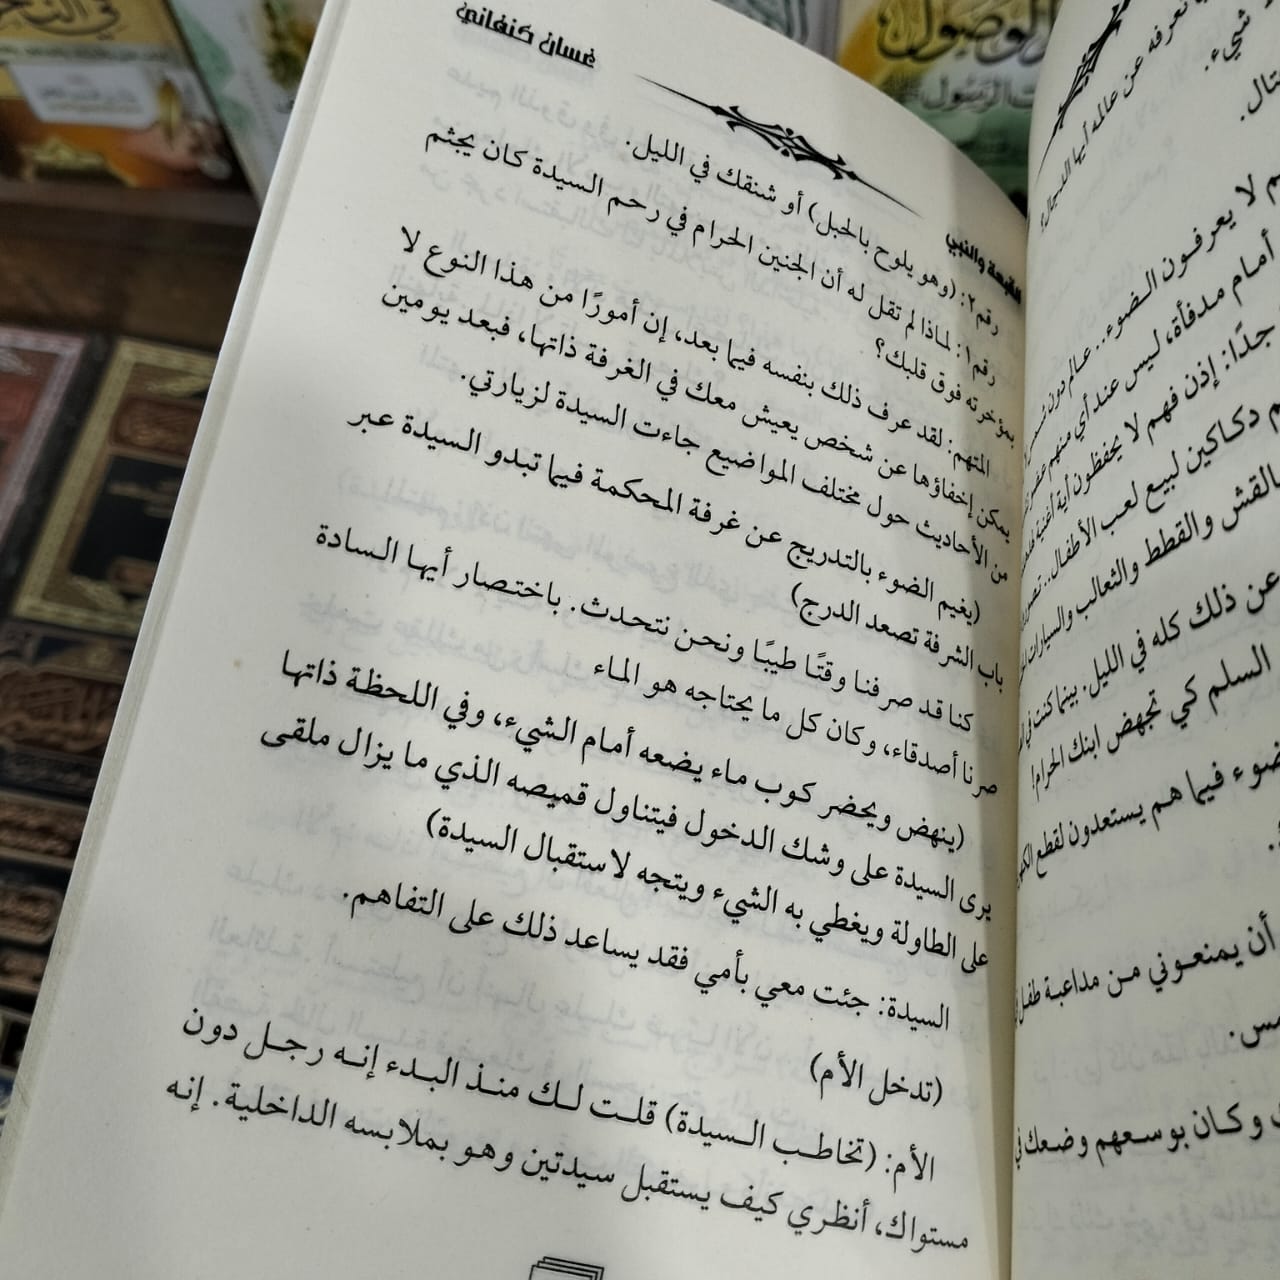 غسان كنفاني
القبعة والنبي
رقم٢: (وهو يلوح بالحبل) أو شنقك في الليل.
رقم١: لماذا لم تقل له أن الجنين الحرام في رحم السيدة كان يجثم
بمؤخرته فوق قلبك؟
المتهم: لقد عرف ذلك بنفسه فيما بعد، إن أمورًا من هذا النوع لا
يمكن إخفاؤها عن شخص يعيش معك في الغرفة ذاتها، فبعد يومين
من الأحاديث حول مختلف المواضيع جاءت السيدة لزيارتي.
(يغيم الضوء بالتدريج عن غرفة المحكمة فيما تبدو السيدة عبر
باب الشرفة تصعد الدرج)
كنا قد صرفنا وقتًا طيبًا ونحن نتحدث. باختصار أيها السادة
صرنا أصدقاء، وكان كل ما يحتاجه هو الماء
(ينهض ويحضر كوب ماء يضعه أمام الشيء، وفي اللحظة ذاتها
يرى السيدة على وشك الدخول فيتناول قميصه الذي ما يزال ملقى
على الطاولة ويغطي به الشيء ويتجه لاستقبال السيدة)
السيدة: جئت معي بأمي فقد يساعد ذلك على التفاهم.
(تدخل الأم)
الأم: (تخاطب السيدة) قلت لك منذ البدء إنه رجل دون
مستواك، أنظري كيف يستقبل سيدتين وهو بملابسه الداخلية. إنه
شيء.
تعرفه عن عالمه أيها الدجال؟
تال.
لا يعرفون الضوء.. عالم دون شمس
أمام مدفأة، ليس عند أي منهم
جدًا: إذن فهم لا يحفظون أية أغنية
دكاكين لبيع لعب الأطفال..
بالقش والقطط والثعالب والسيارات
عن ذلك كله في الليل. بينما كنت في
السلم كي تجهض ابنك الحرام!
ضوء فيما هم يستعدون لقطع
أن يمنعوني من مداعبة طفل
مس.
وكان بوسعهم وضعك في
الوصول
الرسول